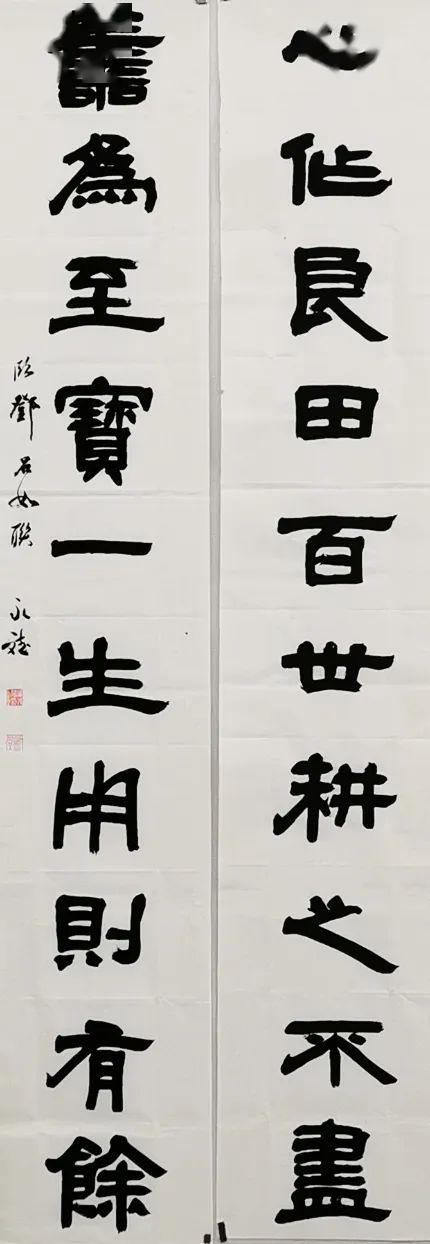 心作良田百世耕之不盡
譱為至寶一生用則有餘
臨鄧石如聯 永